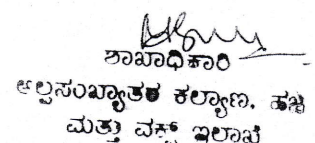 ಶಾಖಾಧಿಕಾರಿ
ಅಲ್ಪಸಂಖ್ಯಾತರ ಕಲ್ಯಾಣ, ಹಜ್
ಮತ್ತು ವಕ್ಫ್ ಇಲಾಖೆ